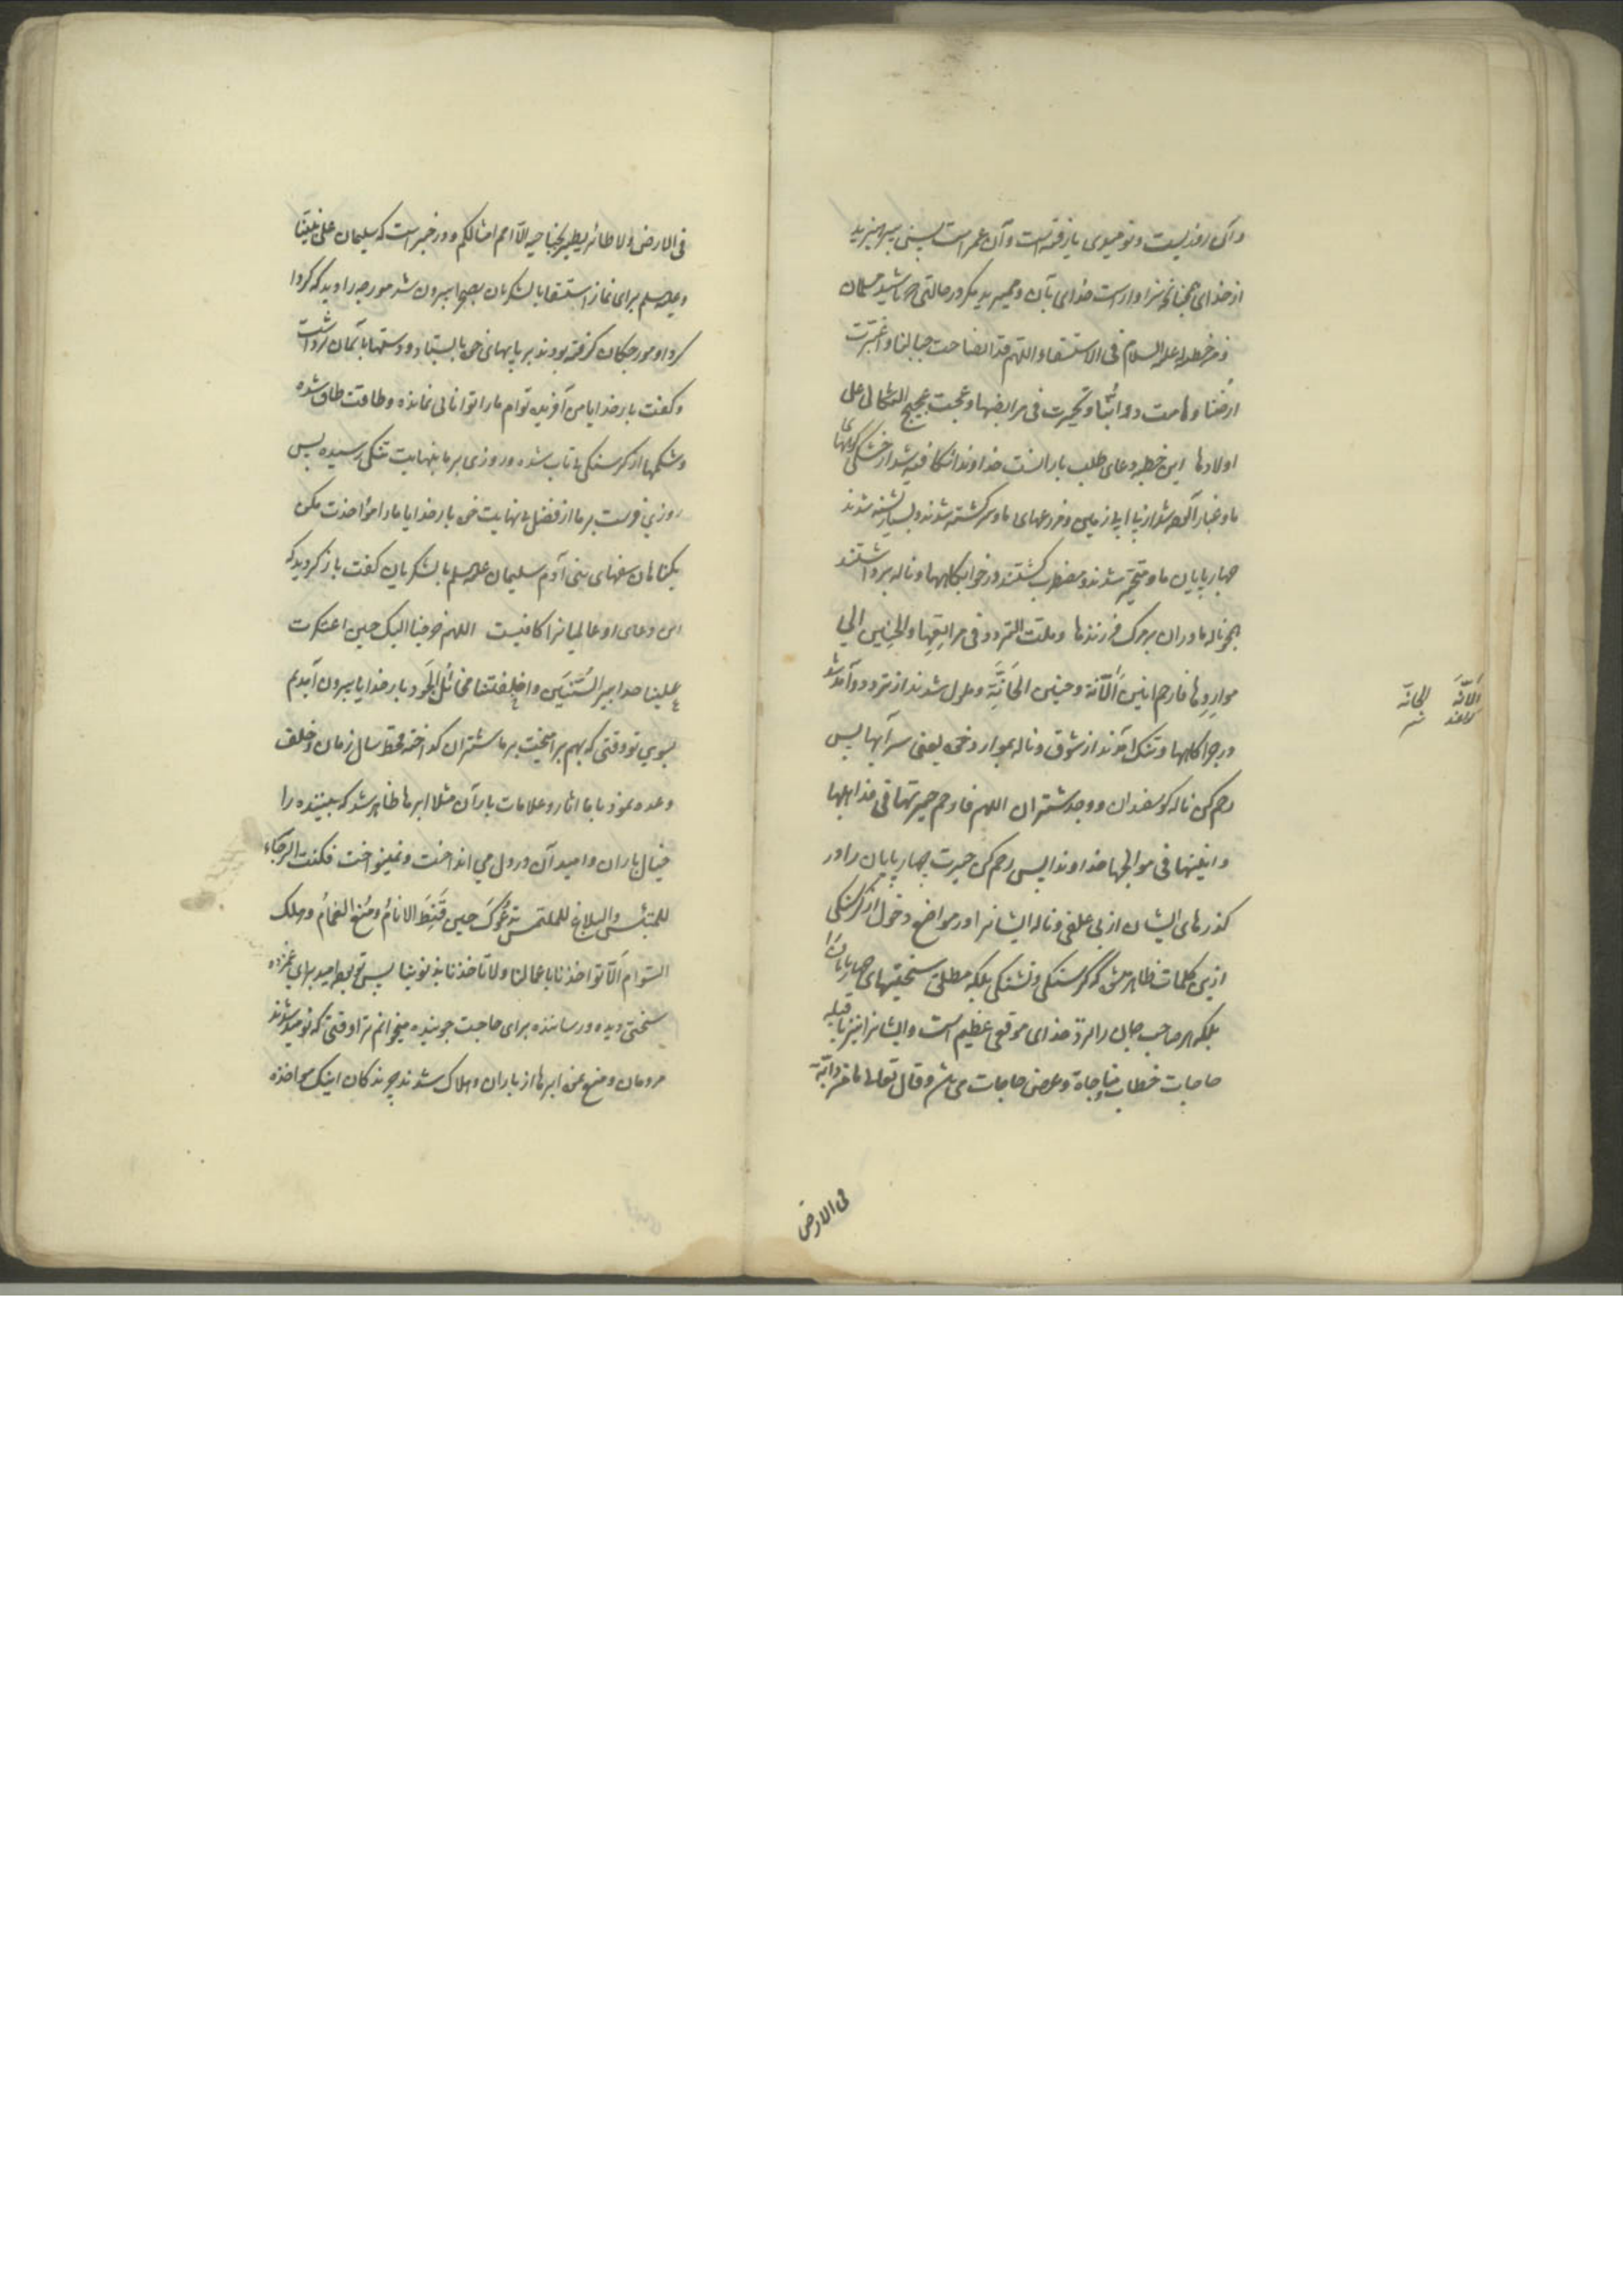 و آن روزیست و نومیدی بازفته است و آن عمر است پس بپرهیزید
از خدای همچنانچه سزاوار است خدای بآن و نمیرید مگر در حالتی که باشید مسلمان
و من خطبة له علیه السلام فی الاستسقاء اللهم قد انصاحت جبالنا و اغبرّت
ارضُنا و هامت دوابّنا و تحیرت فی مرابضها و عجت عجیج الثکالی علی
اولادها این خطبه دعای طلب بارانست خداوندا شکافته شد از خشکی کوههای
ما و غبار آلوده شد از بی آبی زمین و مزرعهای ما و سرگشته شدند و بسیار تشنه شدند
چهارپایان ما و متحیّر شدند و مضطرب گشتند در خوابگاهها و ناله برداشتند
همچو ناله مادران بر مرگ فرزندها و ملت التردد فی مراتِعِها و الحنین الی
مواردِها فارحم انین الآنّة و حنین الحانّة و ملول شدند از تردد و آمد شد
در چراگاهها و تنگ آمدند از شوق و ناله بموارد خود یعنی سر آبها پس
رحم کن ناله گوسفندان و وجد شتران اللهم فارحم حیرتها فی مذاهبها
و انینها فی موالجها خداوندا پس رحم کن حیرت چهارپایان را در
گذرهای ایشان از بی علفی و ناله ایشانرا در مواضع دخول از گرسنگی
ازین کلمات ظاهر میشود که گرسنگی و تشنگی بلکه مطلق سختیهای چهارپایانرا
بلکه هر صاحب جان را نزد خدای موقعی عظیم است و ایشانرا نیز با قبله
حاجات خطاب مناجاة و عرض حاجات می باشد و قال تعالی ما من دابّة
فی الارض
الآنّة الحانّة
فی الارض و لا طائر یطیر بجناحیه الّا امم امثالکم و در خبر است که سلیمان علی نبیّنا
و علیه السلم برای نماز استسقا با لشکریان بصحرا بیرون شد مورچه را دید که گردا
گرد او مورچکان گرفته بودند بر پایهای خود بایستاد و دستها بآسمان برداشت
و گفت بار خدایا من آفریده توام ما را توانائی نمانده و طاقت طاق شده
و شکمها از گرسنگی بی تاب شده و روزی بر ما بنهایت تنگی رسیده پس
روزی فرست بر ما از فضل بی نهایت خود بار خدایا ما را مؤاخذت مکن
بگناهان سفهای بنی آدم سلیمان علیه السلم با لشکریان گفت باز گردید که
این دعای او عالمیانرا کافیست اللهم خرجنا الیک حین اعتکرت
علینا حدابیر السّنین و اخلفتنا مخائل الجَود بار خدایا بیرون آمدیم
بسوی تو وقتی که بهم برآمیخت بر ما شتران گداخته قحط سال زمان و خلف
وعده نمود با ما آثار و علامات باران مثلا ابرها ظاهر شد که بیننده را
خیال باران و امید آن در دل می انداخت و نمینواخت فکنت الرّجاء
للمبتئس و البلاغ للملتمس ندعوک حین قَنِطَ الانامُ و مُنع الغمامُ و هلک
السّوام اَلّا تؤاخذنا باعمالنا و لا تأخذنا بذنوبنا پس توئی امید برای غمزده
سختی دیده و رساننده برای حاجت جوینده میخوانم ترا وقتی که نومید شدند
مردمان و منع شد ابرها از باران و هلاک شدند چرندگان اینک مؤاخذه